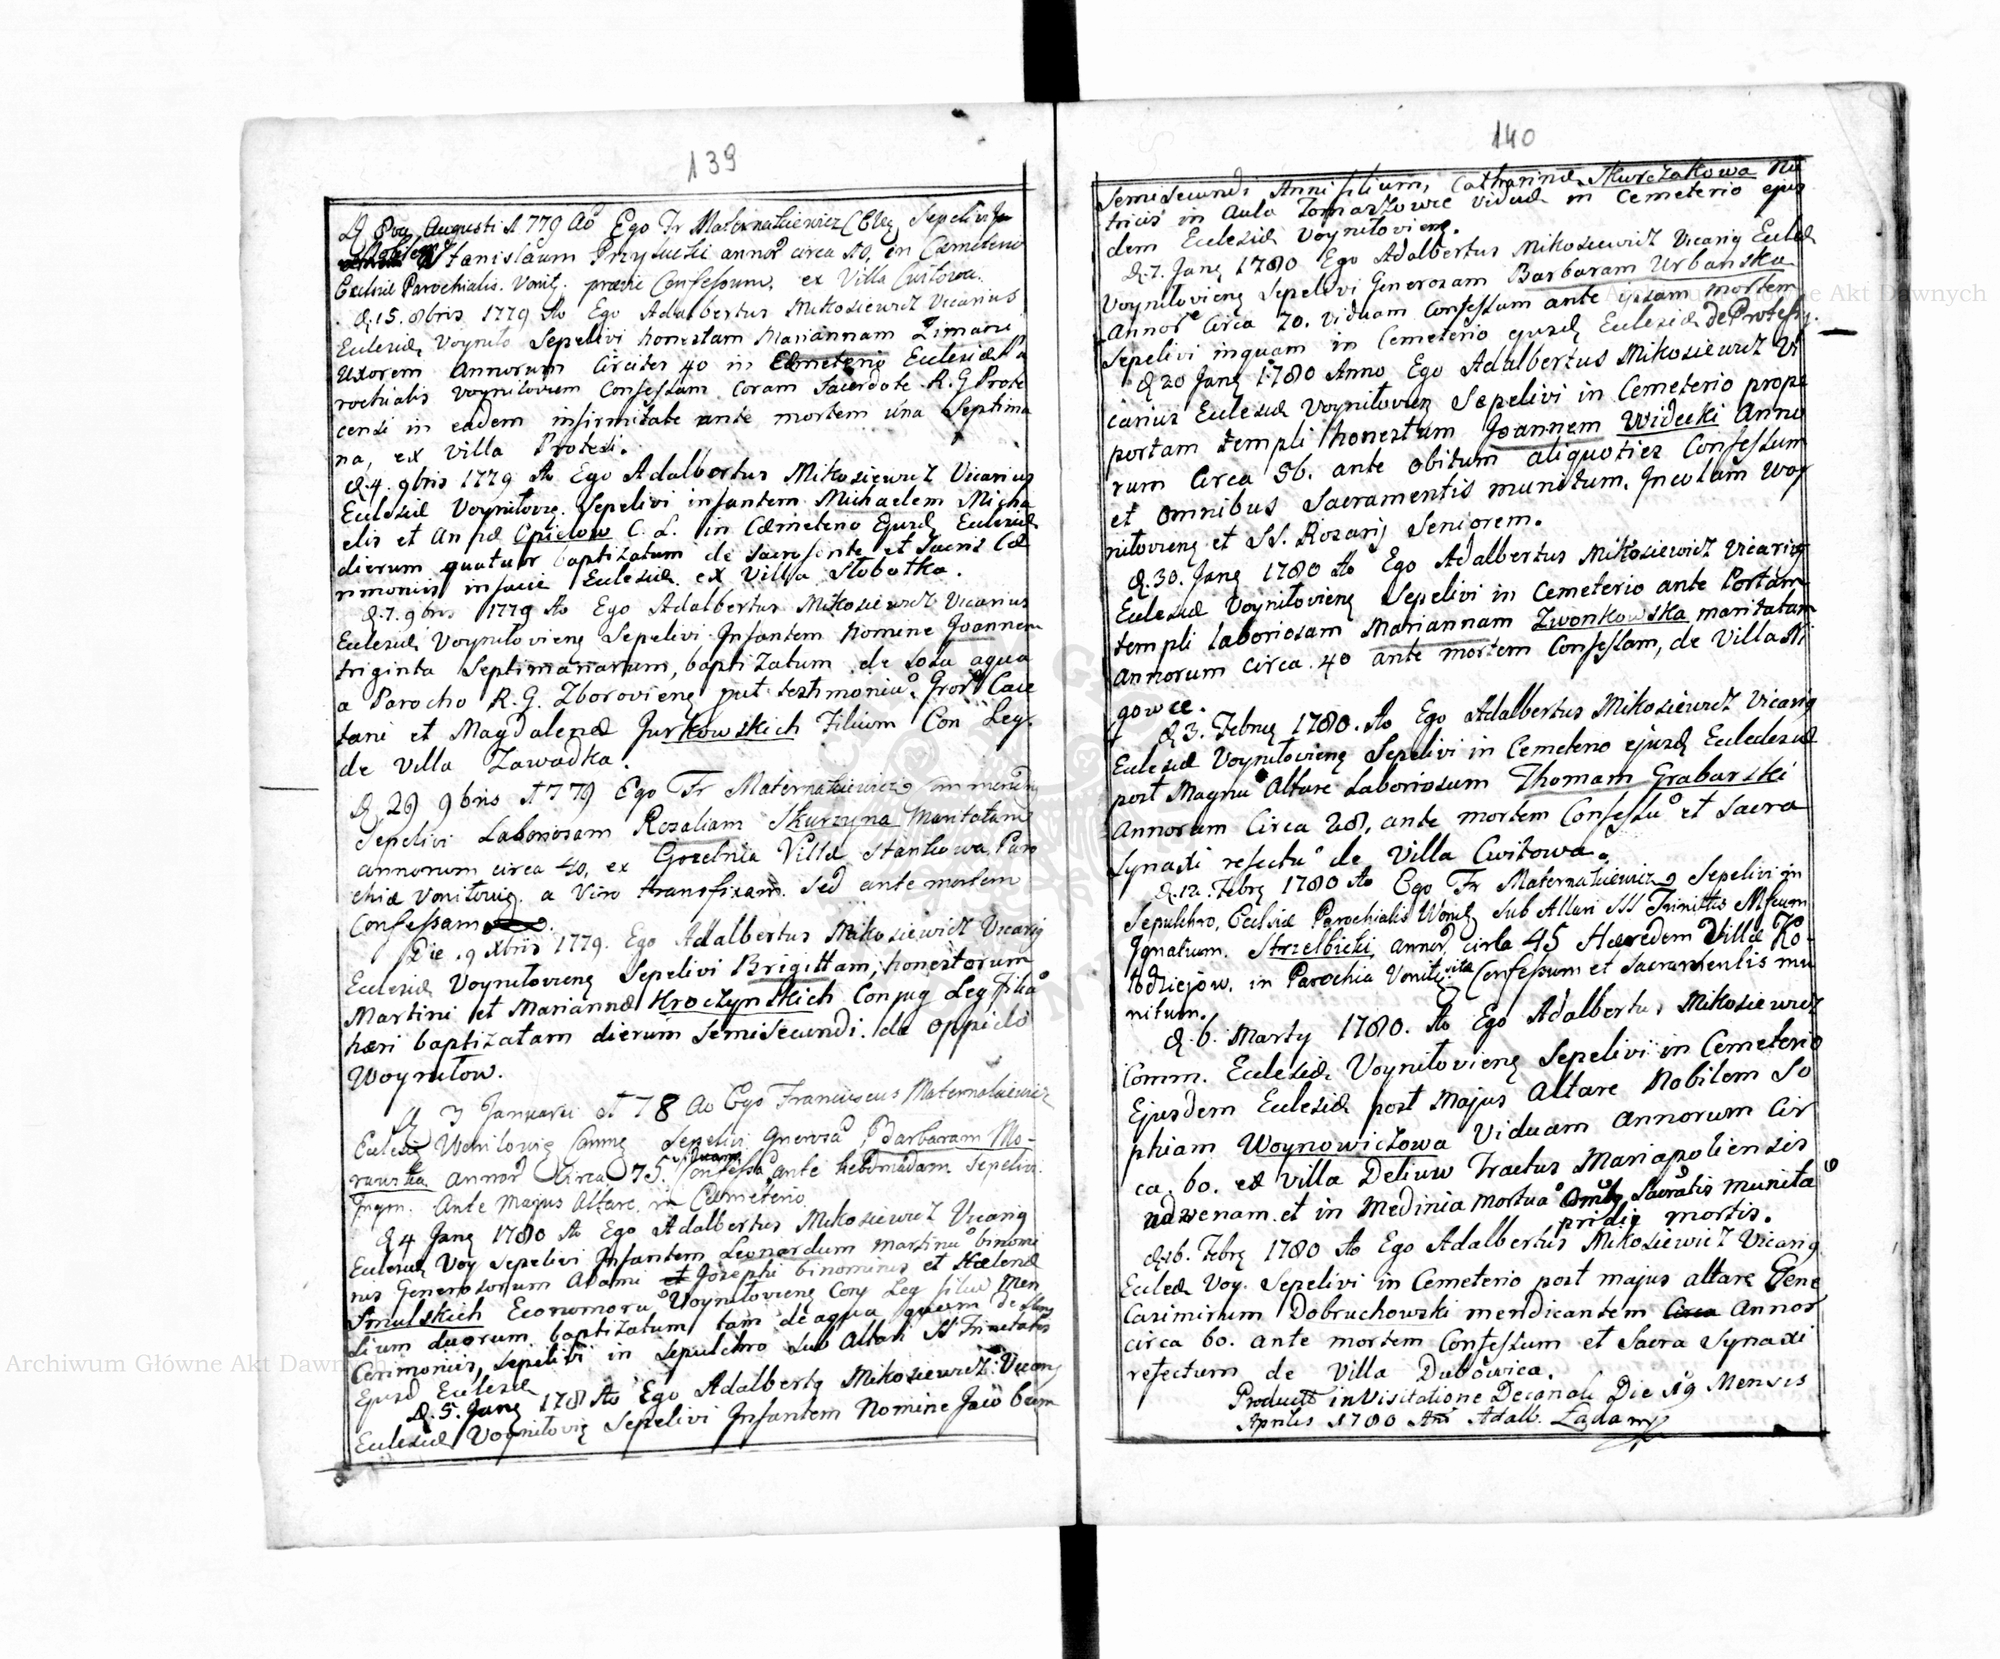 139
D 8va Augusti 1779 Ao Ego Fr Maternakiewicz C Eccl Sepelivi
Nobilem Stanislaum Przyłucki annor circa 40, in Cæmeterio
Ecclesiæ Parochialis. Vonil. prævie Confessum, ex Villa Cwitowa.
D. 15. 8bris 1779 Ao Ego Adalbertus Mikosiewicz Vicarius
Ecclesiæ Voyniło Sepelivi honestam Mariannam Zimani
uxorem Annorum Circiter 40 in Cemeterio Ecclesiæ Pa
rochialis Voynilovien Confessam Coram Sacerdote R. G Prote
censi in eadem infirmitate ante mortem una Septima
na, ex Villa Protesi.
D. 4. 9bris 1779 Ao Ego Adalbertus Mikosiewicz Vicarius
Ecclesiæ Voyniłovie. Sepelivi infantem Michaelem Micha
elis et Annæ Opielow C. L. in Cæmeterio Ejusd Ecclesiæ
dierum quatuor baptizatum de sacro fonte et Sacris Cæ
rimoniis in facie Ecclesiæ. ex Villa Słobotka.
D. 7. 9bris 1779 Ao Ego Adalbertus Mikosiewicz Vicarius
Ecclesiæ Voyniłoviens Sepelivi Infantem Nomine Joannem
triginta Septimanarum, baptizatum de sola aqua
a Parocho R. G. Zboroviens put testimoniu. Gror Caie
tani et Magdalenæ Jurkowskich Filium Con Leg.
de Villa Zawadka.
D 29 9bris 1779 Ego Fr Maternakiewicz Commend
Sepelivi Laboriosam Rozaliam Skurzyna Maritatam
annorum circa 40, ex Gorzelnia Villæ Stankowa, Paro
chiæ Voniłowie. a Viro transfixam. Sed ante mortem
Confessam.
Die 9 Xbris 1779. Ego Adalbertus Mikosiewicz Vicarius
Ecclesiæ Voyniłoviens Sepelivi Brigittam, honestorum
Martini et Mariannæ Kroczynskich Conjug Leg filia
heri baptizatam dierum Semisecundi. de oppido
Woyniłow.
D 3 Januarii 178 Ao Ego Franciscus Maternakiewicz
Eccles Woniłowie Comme Sepelivi Gnerosa Barbaram Mo-
rawska Annor Circa 75. viduam Confessa ante hebdomadam Sepelivi
Inqm. Ante Majus Altare, in Cæmeterio.
D 4 Jany 1780 Ao Ego Adalbertus Mikosiewicz Vicarius
Ecclesiæ Voy Sepelivi Infantem Leonardum Martinu binomi
nus Generosorum Adami et Josephi binominis et Helenæ
Smulskich Economoru Voyniłoviens Conj Leg filiu Men
sium duorum baptizatum tam de aqua quam de
Cerimoniis, Sepelivi in Sepulchro Sub Altari SS Trinitatis
Ejusd Ecclesiæ
D. 5. Jany 178 Ao Ego Adalbertus Mikosiewicz Vicarius
Ecclesiæ Voyniłovie Sepelivi Infantem Nomine Jacobum
140
Semisecundi Anni filium, Catharinæ Skurczakowa Nu
tricis in Aula Tomaszowce Viduæ in Cemeterio ejus
dem Ecclesiæ Voyniłoviens.
D. 7. Jany 1780 Ego Adalbertus Mikosiewicz Vicarius Eccleæ
Voyniłoviens Sepelivi Generosam Barbaram Urbanska
Annor Circa 70. Viduam Confessam ante ipsam mortem
Sepelivi inquam in Cemeterio ejusd Ecclesiæ de Protesy.
D 20 Jany 1780 Anno Ego Adalbertus Mikosiewicz Vi
carius Ecclesiæ Voyniłoviens Sepelivi in Cemeterio prope
portam templi honestum Joannem Widecki Anno
rum Circa 56. ante obitum aliquoties Confessum
et omnibus Sacramentis munitum. Incolam Woy
niłoviens et SS. Rozarij Seniorem.
D. 30. Jany 1780 Ao Ego Adalbertus Mikosiewicz Vicarius
Ecclesiæ Voyniłoviens Sepelivi in Cemeterio ante Portam
templi laboriosam Mariannam Zwonkowska maritatam
Annorum Circa 40 ante mortem Confessam, de Villa Ni
gowce.
D 3. Febru 1780. Ao Ego Adalbertus Mikosiewicz Vicarius
Ecclesiæ Voyniłoviens Sepelivi in Cemeterio ejusd Eccleciesiæ
post Magnu Altare Laboriosum Thomam Grabarski
Annorum Circa 28, ante mortem Confessu et Sacra
Synaxi refectu de Villa Cwitowa.
D. 12. Febr 1780 Ao Ego Fr Maternakiewicz Sepelivi in
Sepulchro, Ecclsiæ Parochialis Wonił Sub Altari SSS Trinittis Mfcum
Ignatium. Strzelbicki, annor, circa 45 Hæredem Villæ Ko-
łodziejow, in Parochia Voniło sita Confessum et Sacramentis mu
nitum.
D. 6. Marty 1780. Ao Ego Adalbertus Mikosiewicz
Comm. Ecclesiæ Voyniłoviens Sepelivi in Cemeterio
Ejusdem Ecclesiæ post Majus Altare Nobilem So
phiam Woynowiczowa Viduam Annorum Cir
ca. 60. ex Villa Deliuw Tractus Mariapoliensis
advenam et in Medinia Mortua Omb Sacratis munita
pridie mortis.
D 26. Febr 1780 Ao Ego Adalbertus Mikosiewicz Vicarius
Eccleæ Voy. Sepelivi in Cemeterio post majus altare Gene
Casimirum Dobruchowski mendicantem Circa Annor
circa 60. ante mortem Confessum et Sacra Synaxi
refectum de Villa Dubowica.
Product in Visitatione Decanali Die 19 Mensis
Aprilis 1780 Ann Adalb. Ladany
Archiwum Główne Akt Dawnych
Archiwum Główne Akt Dawnych